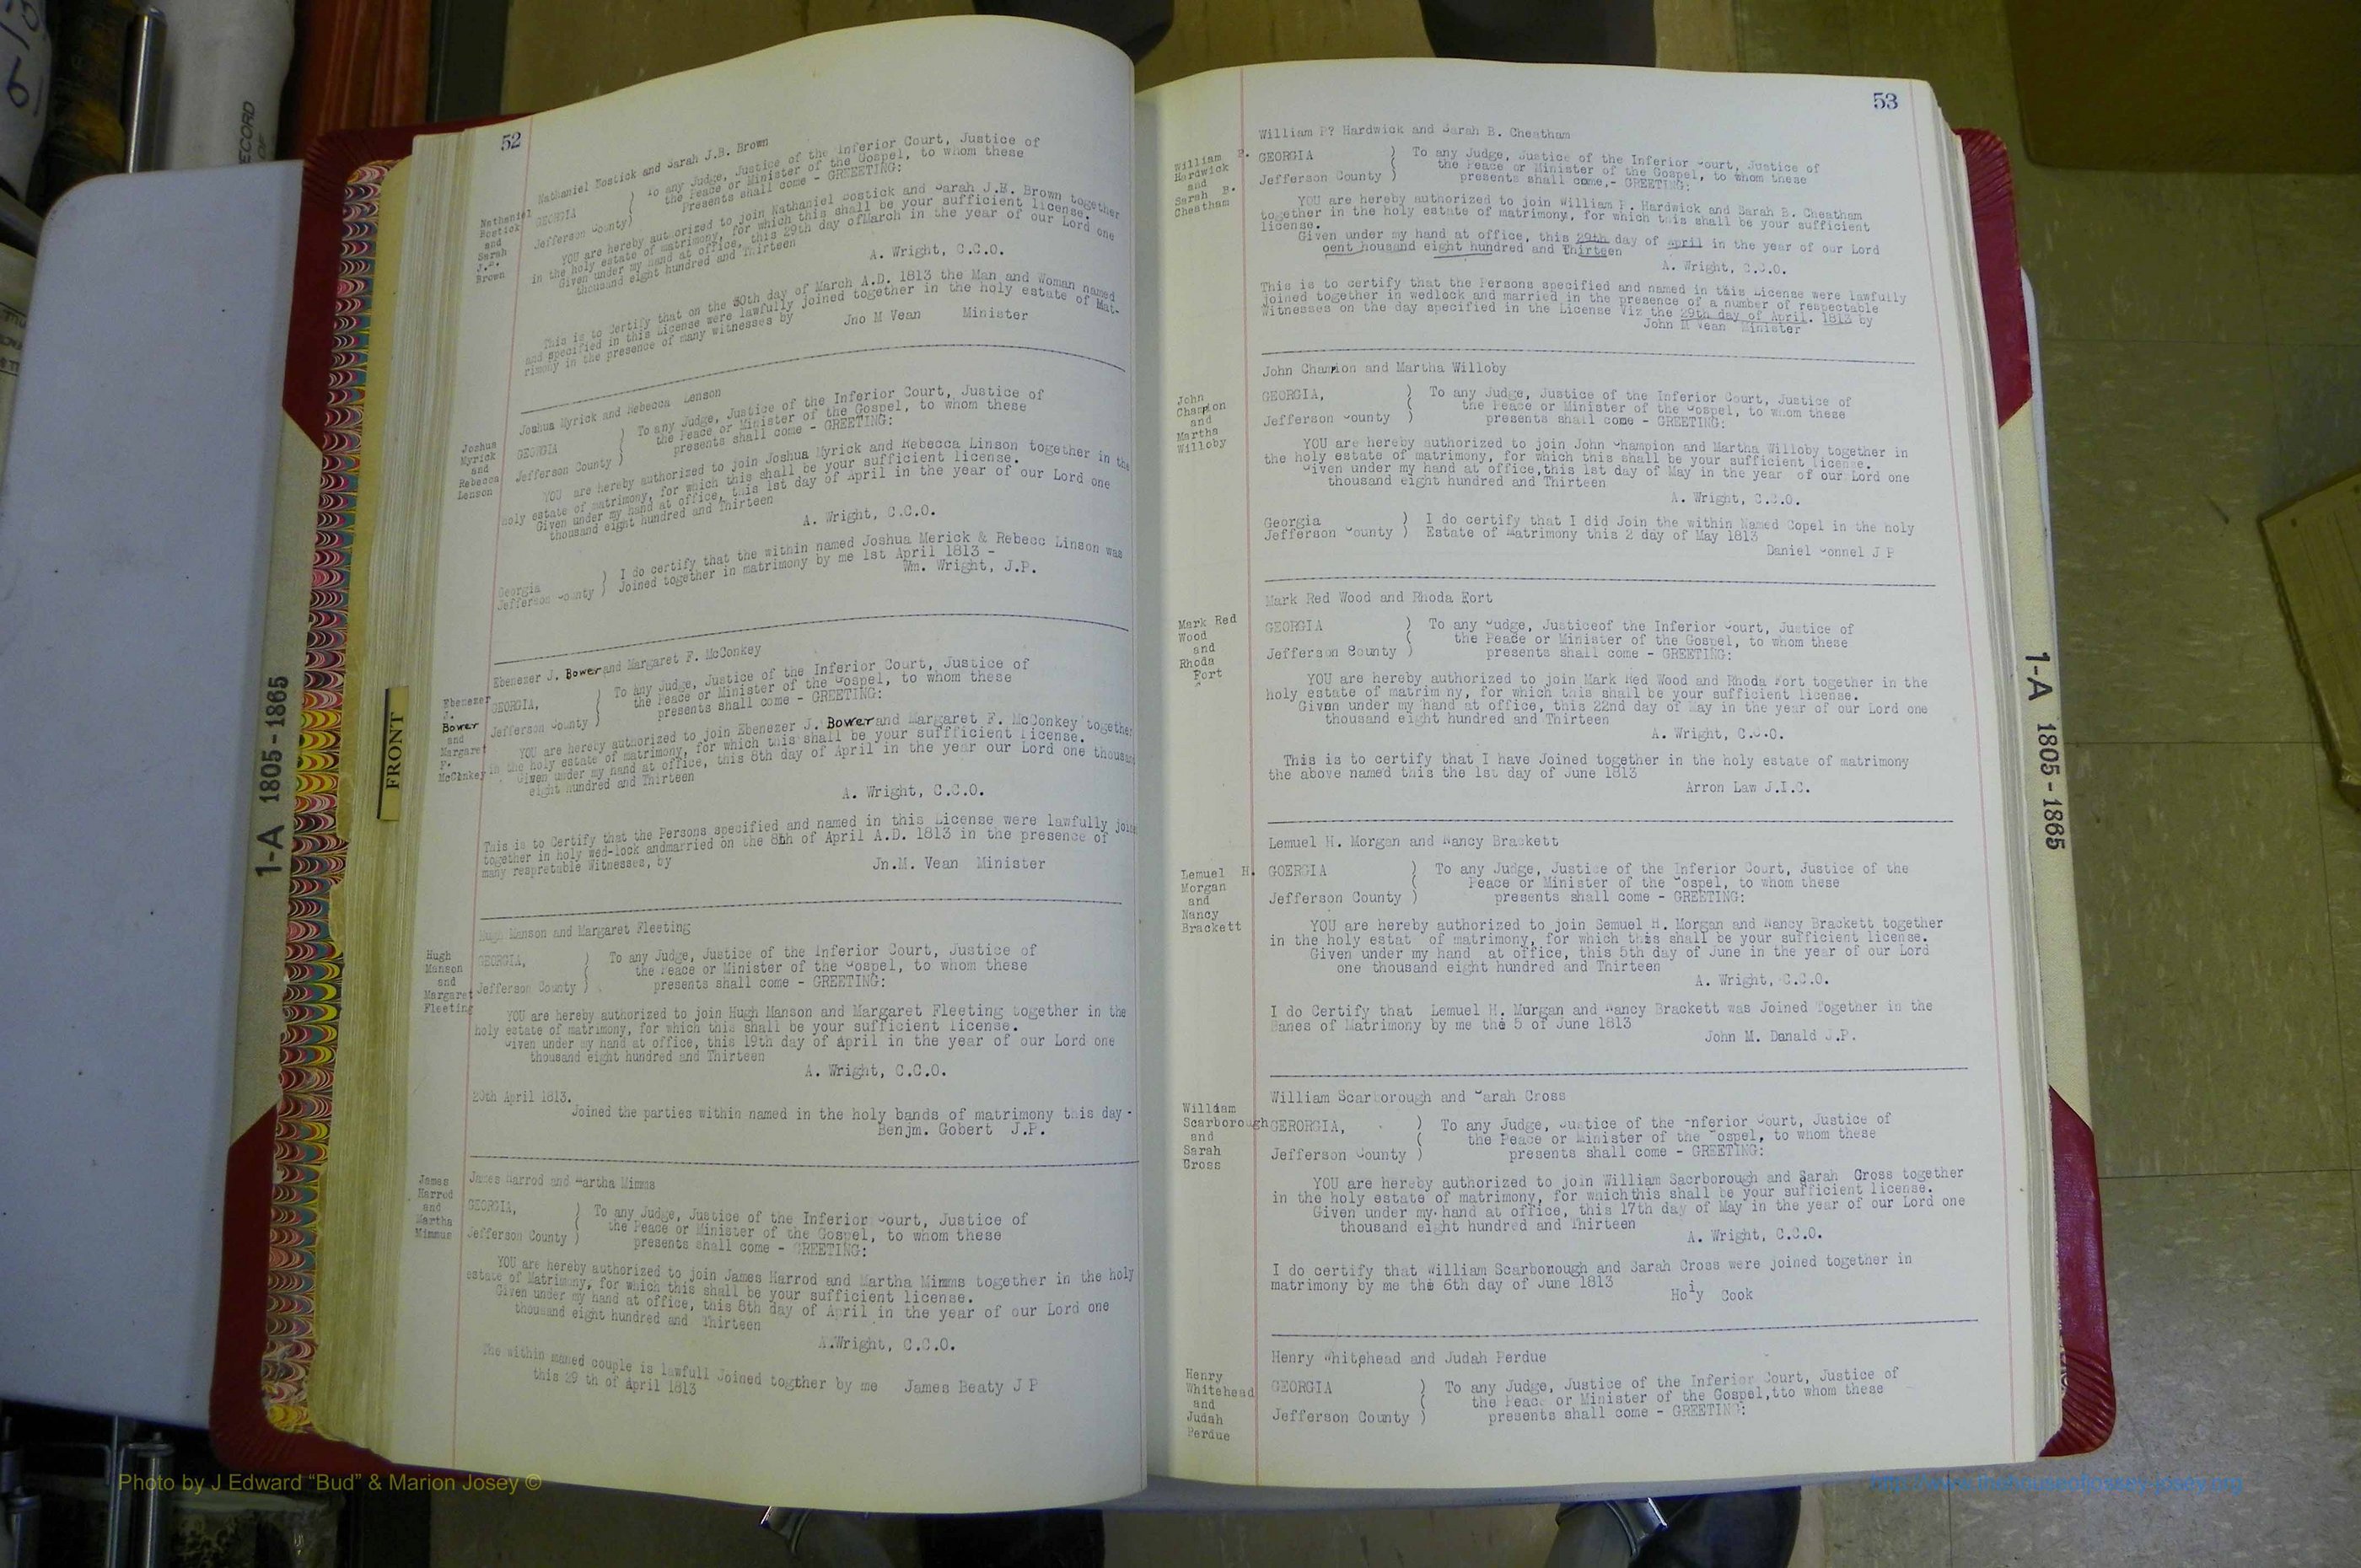 RECORD
OF
1-A 1805-1865
FRONT
52
Nathaniel Bostick and Sarah J.B. Brown
Nathaniel
Bostick
and
Sarah
J.B.
Brown
GEORGIA
Jefferson County)
To any Judge, Justice of the Inferior Court, Justice of
the Peace or Minister of the Gospel, to whom these
Presents shall come - GREETING:
YOU are hereby authorized to join Nathaniel Bostick and Sarah J.B. Brown together
in the holy estate of matrimony, for which this shall be your sufficient license.
Given under my hand at office, this 29th day ofMarch in the year of our Lord one
thousand eight hundred and Thirteen
A. Wright, C.C.O.
This is to Certify that on the 30th day of March A.D. 1813 the Man and Woman named
and specified in this License were lawfully joined together in the holy estate of Mat-
rimony in the presence of many witnesses by
Jno M Vean Minister
Joshua Myrick and Rebecca Lenson
Joshua
Myrick
and
Rebecca
Lenson
GEORGIA
Jefferson County )
To any Judge, Justice of the Inferior Court, Justice of
the Peace or Minister of the Gospel, to whom these
presents shall come - GREETING:
YOU are hereby authorized to join Joshua Myrick and Rebecca Linson together in the
holy estate of matrimony, for which this shall be your sufficient license.
Given under my hand at office, this 1st day of April in the year of our Lord one
thousand eight hundred and Thirteen
A. Wright, C.C.O.
Georgia )
Jefferson County )
I do certify that the within named Joshua Merick & Rebecc Linson was
Joined together in matrimony by me 1st April 1813 -
Wm. Wright, J.P.
Ebenezer J. Bower and Margaret F. McConkey
Ebenezer
J.
Bower
and
Margaret
F.
McConkey
GEORGIA,
Jefferson County )
To any Judge, Justice of the Inferior Court, Justice of
the Peace or Minister of the Gospel, to whom these
presents shall come - GREETING:
YOU are hereby authorized to join Ebenezer J. Bower and Margaret F. McConkey together
in the holy estate of matrimony, for which this shall be your suffficient license.
Given under my hand at office, this 8th day of April in the year our Lord one thousand
eight hundred and Thirteen
A. Wright, C.C.O.
This is to Certify that the Persons specified and named in this License were lawfully joined
together in holy wed-lock andmarried on the 8th of April A.D. 1813 in the presence of
many respretable Witnesses, by
Jn.M. Vean Minister
Hugh Manson and Margaret Fleeting
Hugh
Manson
and
Margaret
Fleeting
GEORGIA,
Jefferson County )
To any Judge, Justice of the Inferior Court, Justice of
the Peace or Minister of the Gospel, to whom these
presents shall come - GREETING:
YOU are hereby authorized to join Hugh Manson and Margaret Fleeting together in the
holy estate of matrimony, for which this shall be your sufficient license.
Given under my hand at office, this 19th day of April in the year of our Lord one
thousand eight hundred and Thirteen
A. Wright, C.C.O.
20th April 1813.
Joined the parties within named in the holy bands of matrimony this day -
Benjm. Gobert J.P.
James Harrod and Martha Mimms
James
Harrod
and
Martha
Mimmus
GEORGIA,
Jefferson County )
To any Judge, Justice of the Inferior Court, Justice of
the Peace or Minister of the Gospel, to whom these
presents shall come - GREETING:
YOU are hereby authorized to join James Harrod and Martha Mimms together in the holy
estate of Matrimony, for which this shall be your sufficient license.
Given under my hand at office, this 8th day of April in the year of our Lord one
thousand eight hundred and Thirteen
A.Wright, C.C.O.
The within maned couple is lawfull Joined togther by me James Beaty J P
this 29 th of April 1813
53
William P? Hardwick and Sarah B. Cheatham
William P.
Hardwick
and
Sarah B.
Cheatham
GEORGIA
Jefferson County )
To any Judge, Justice of the Inferior Court, Justice of
the Peace or Minister of the Gospel, to whom these
presents shall come,- GREETING:
YOU are hereby authorized to join William P. Hardwick and Sarah B. Cheatham
together in the holy estate of matrimony, for which this shall be your sufficient
license.
Given under my hand at office, this 29th day of April in the year of our Lord
oent housand eight hundred and Thirteen
A. Wright, C.C.O.
This is to certify that the Persons specified and named in this License were lawfully
joined together in wedlock and married in the presence of a number of respectable
Witnesses on the day specified in the License Viz the 29th day of April. 1813 by
John M Vean Minister
John Champion and Martha Willoby
John
Champion
and
Martha
Willoby
GEORGIA,
Jefferson County )
To any Judge, Justice of the Inferior Court, Justice of
the Peace or Minister of the Gospel, to whom these
presents shall come - GREETING:
YOU are hereby authorized to join John Champion and Martha Willoby together in
the holy estate of matrimony, for which this shall be your sufficient license.
Given under my hand at office,this 1st day of May in the year of our Lord one
thousand eight hundred and Thirteen
A. Wright, C.C.O.
Georgia )
Jefferson County )
I do certify that I did Join the within Named Copel in the holy
Estate of Matrimony this 2 day of May 1813
Daniel Connel J P
Mark Red Wood and Rhoda Fort
Mark Red
Wood
and
Rhoda
Fort
GEORGIA
Jefferson County )
To any Judge, Justiceof the Inferior Court, Justice of
the Peace or Minister of the Gospel, to whom these
presents shall come - GREETING:
YOU are hereby authorized to join Mark Red Wood and Rhoda Fort together in the
holy estate of matrim ny, for which this shall be your sufficient license.
Given under my hand at office, this 22nd day of May in the year of our Lord one
thousand eight hundred and Thirteen
A. Wright, C.C.O.
This is to certify that I have Joined together in the holy estate of matrimony
the above named this the 1st day of June 1813
Arron Law J.I.C.
Lemuel H. Morgan and Nancy Brackett
Lemuel H.
Morgan
and
Nancy
Brackett
GOERGIA
Jefferson County )
To any Judge, Justice of the Inferior Court, Justice of the
Peace or Minister of the Gospel, to whom these
presents shall come - GREETING:
YOU are hereby authorized to join Semuel H. Morgan and Nancy Brackett together
in the holy estat of matrimony, for which this shall be your sufficient license.
Given under my hand at office, this 5th day of June in the year of our Lord
one thousand eight hundred and Thirteen
A. Wright, C.C.O.
I do Certify that Lemuel H. Murgan and Nancy Brackett was Joined Together in the
Banes of Matrimony by me the 5 of June 1813
John M. Danald J.P.
William Scarborough and Sarah Cross
William
Scarborough
and
Sarah
Cross
GERORGIA,
Jefferson County )
To any Judge, Justice of the Inferior Court, Justice of
the Peace or Minister of the Gospel, to whom these
presents shall come - GREETING:
YOU are hereby authorized to join William Sacrborough and Sarah Cross together
in the holy estate of matrimony, for whichthis shall be your sufficient license.
Given under my hand at office, this 17th day of May in the year of our Lord one
thousand eight hundred and Thirteen
A. Wright, C.C.O.
I do certify that William Scarborough and Sarah Cross were joined together in
matrimony by me the 6th day of June 1813
Hoiy Cook
Henry Whitehead and Judah Perdue
Henry
Whitehead
and
Judah
Perdue
GEORGIA
Jefferson County )
To any Judge, Justice of the Inferior Court, Justice of
the Peace or Minister of the Gospel,tto whom these
presents shall come - GREETING:
1-A 1805-1865
Photo by J Edward “Bud” & Marion Josey ©
http://www.thehouseofjossey-josey.org